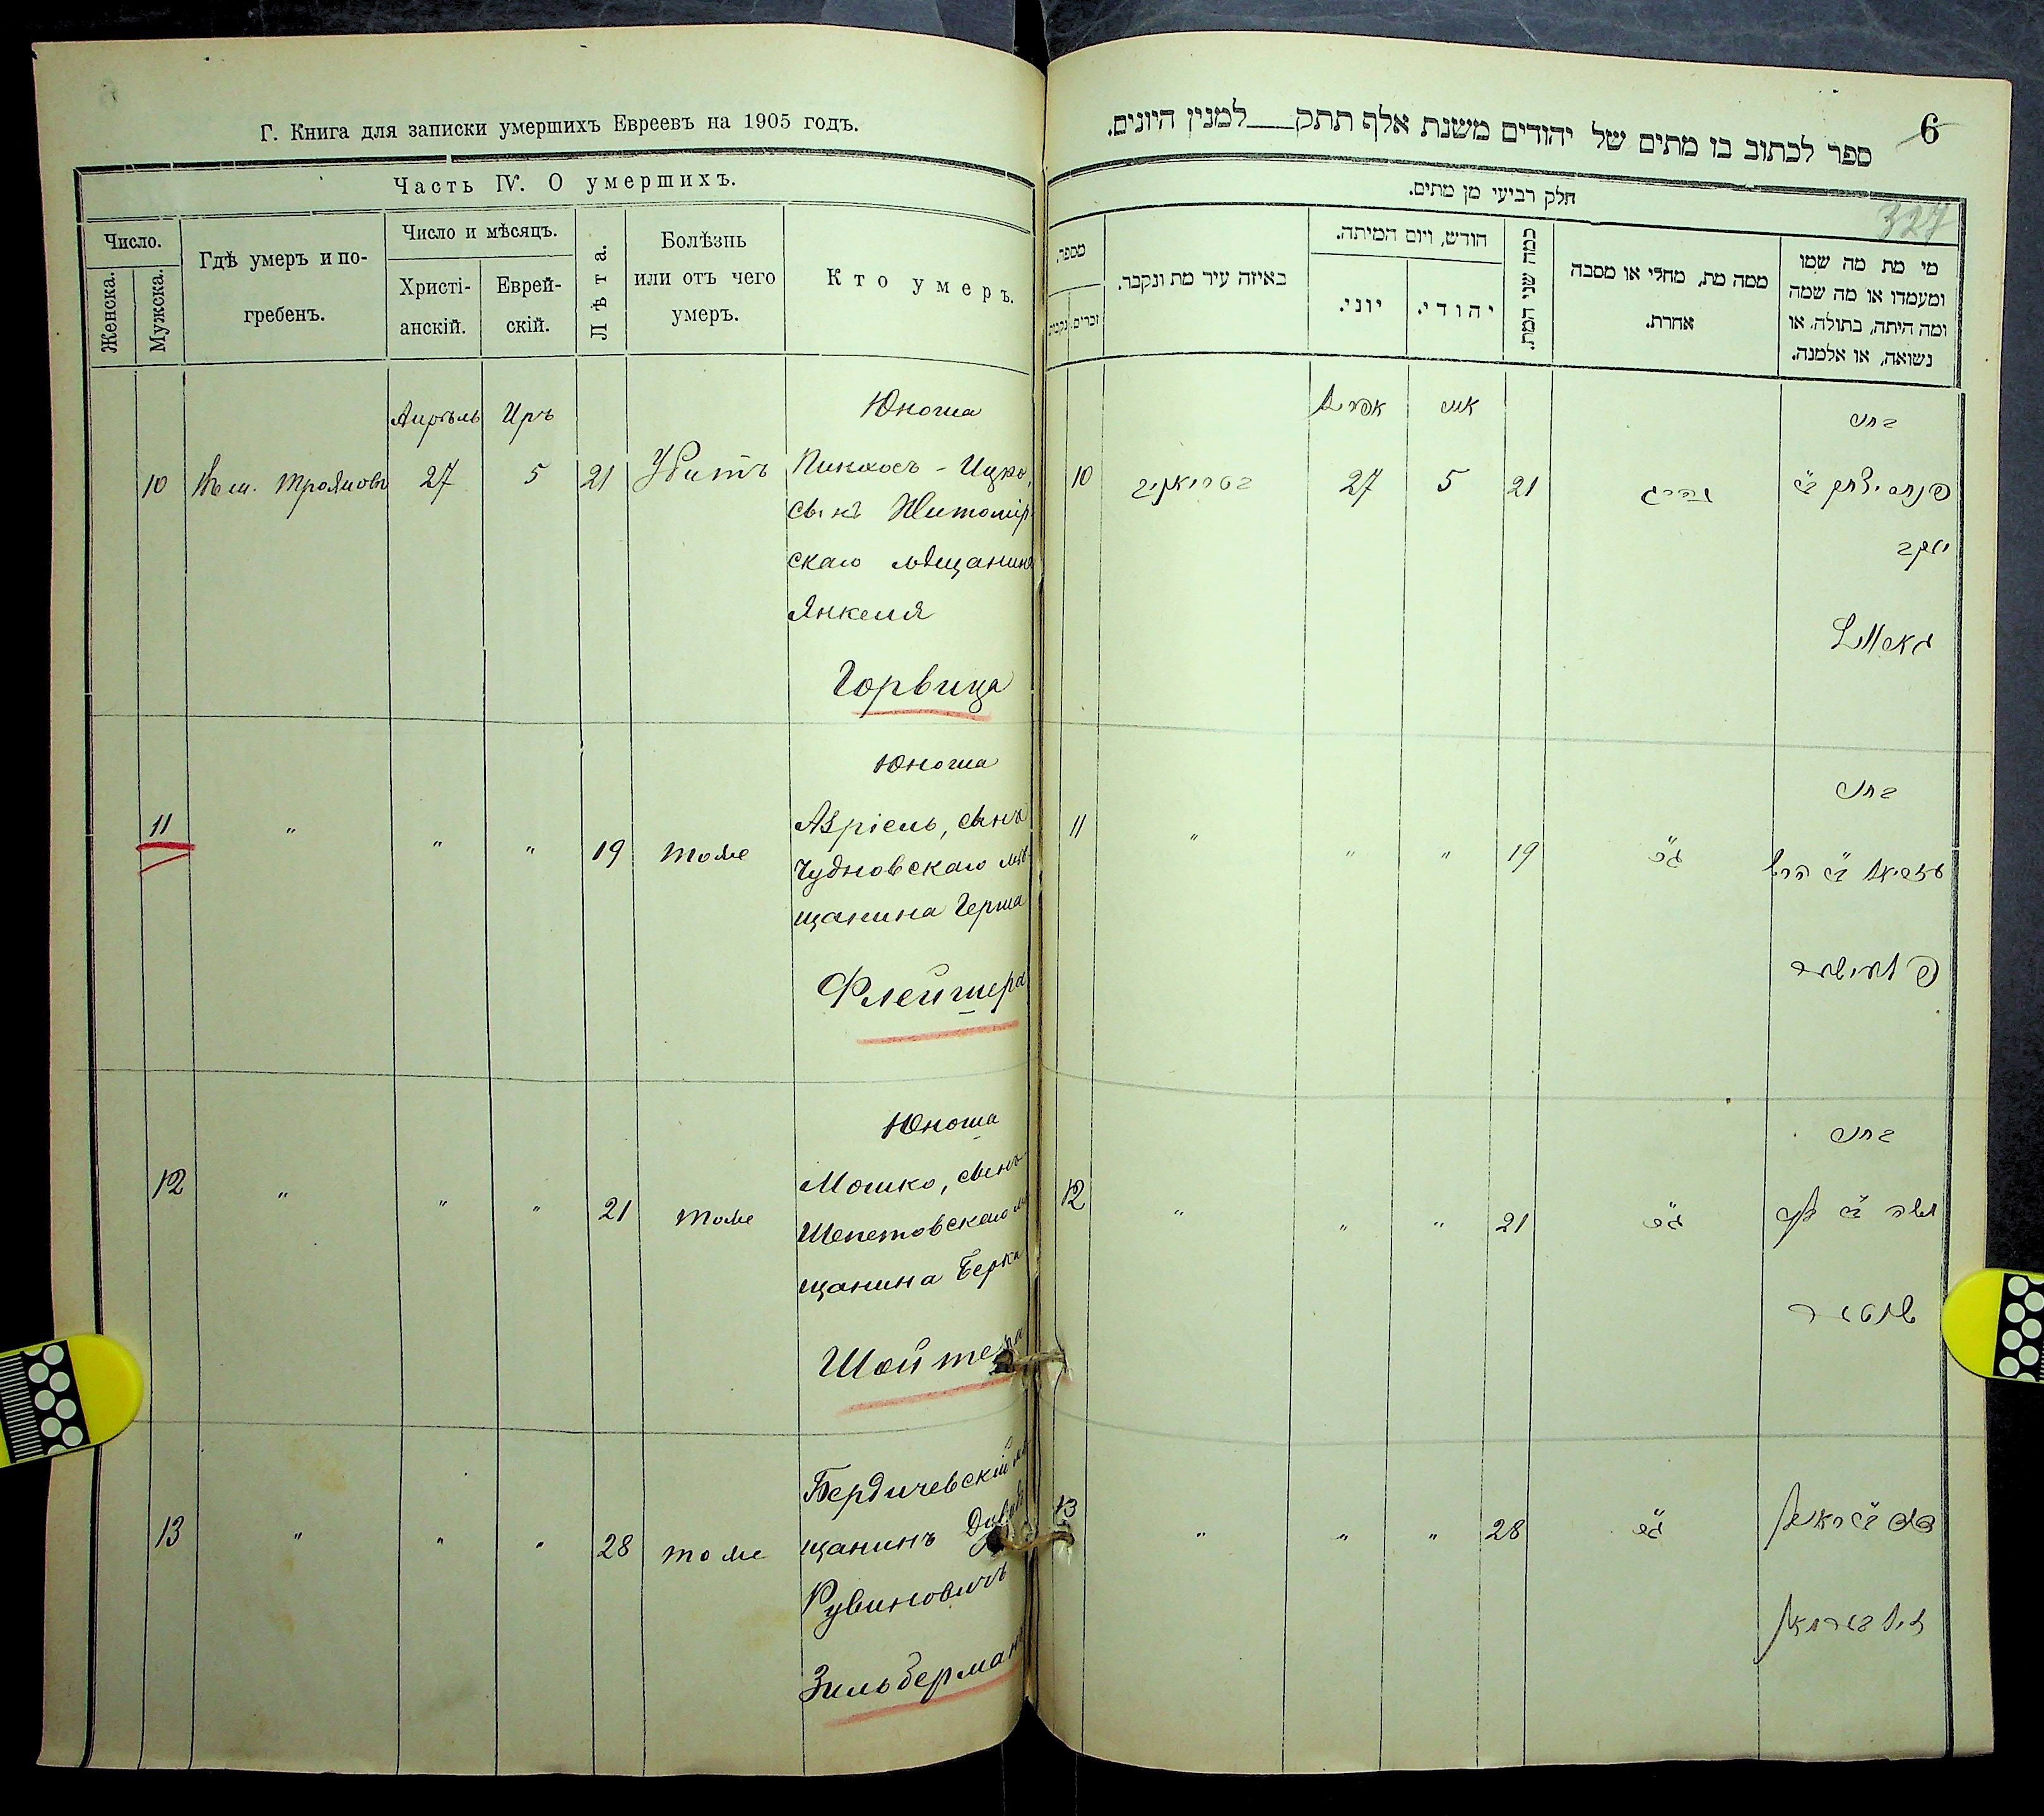 Г. Книга для записки умершихъ Евреевъ на 1905 годъ.
Часть IV. О умершихъ.
Число.
Женска.
Мужска.
Гдѣ умеръ и по-
гребенъ.
Число и мѣсяцъ.
Христі-
анскій.
Еврей-
скій.
Лѣта.
Болѣзнь
или отъ чего
умеръ.
Кто умеръ.
Апрѣль Иръ Юноша
10 Троянов 27 5 21 Убитъ Пинхосъ-Ицко,
сынъ Житомір
скаго мѣщанина
Янкеля
Горвица
Юноша
11 " " " 19 тоже Азріель, сынъ
Чудновскаго мѣ-
щанина Герша
Флейшера
Юноша
12 " " " 21 тоже Мошко, сынъ
Шепетовскаго мѣ
щанина Берка
Шойтера
Бердичевскій мѣ
13 " " " 28 тоже щанинъ
Рувиновичъ
Зильберманъ
6
ספר לכתוב בו מתים של יהודים משנת אלף תתק___למנין היונים.
327
חלק רביעי מן מתים.
מספר.
זכרים.
נקבות.
באיזה עיר מת ונקבר.
חודש, ויום המיתה.
יוני.
יהודי.
כמה שני המת.
ממה מת, מחלי או מסבה
אחרת.
מי מת מה שמו
ומעמדו או מה שמה
ומה היתה, בתולה, או
נשואה, או אלמנה.
אפריל אייר בחור
10 27 5 21 נהרג פנחס יצחק ב"ר
יעקב
בחור
11 " " " 19 כנ"ל עזריאל ב"ר הרש
פליישער
בחור
12 " " " 21 כנ"ל משה ב"ר
13 " " " 28 כנ"ל
זילבערמאן